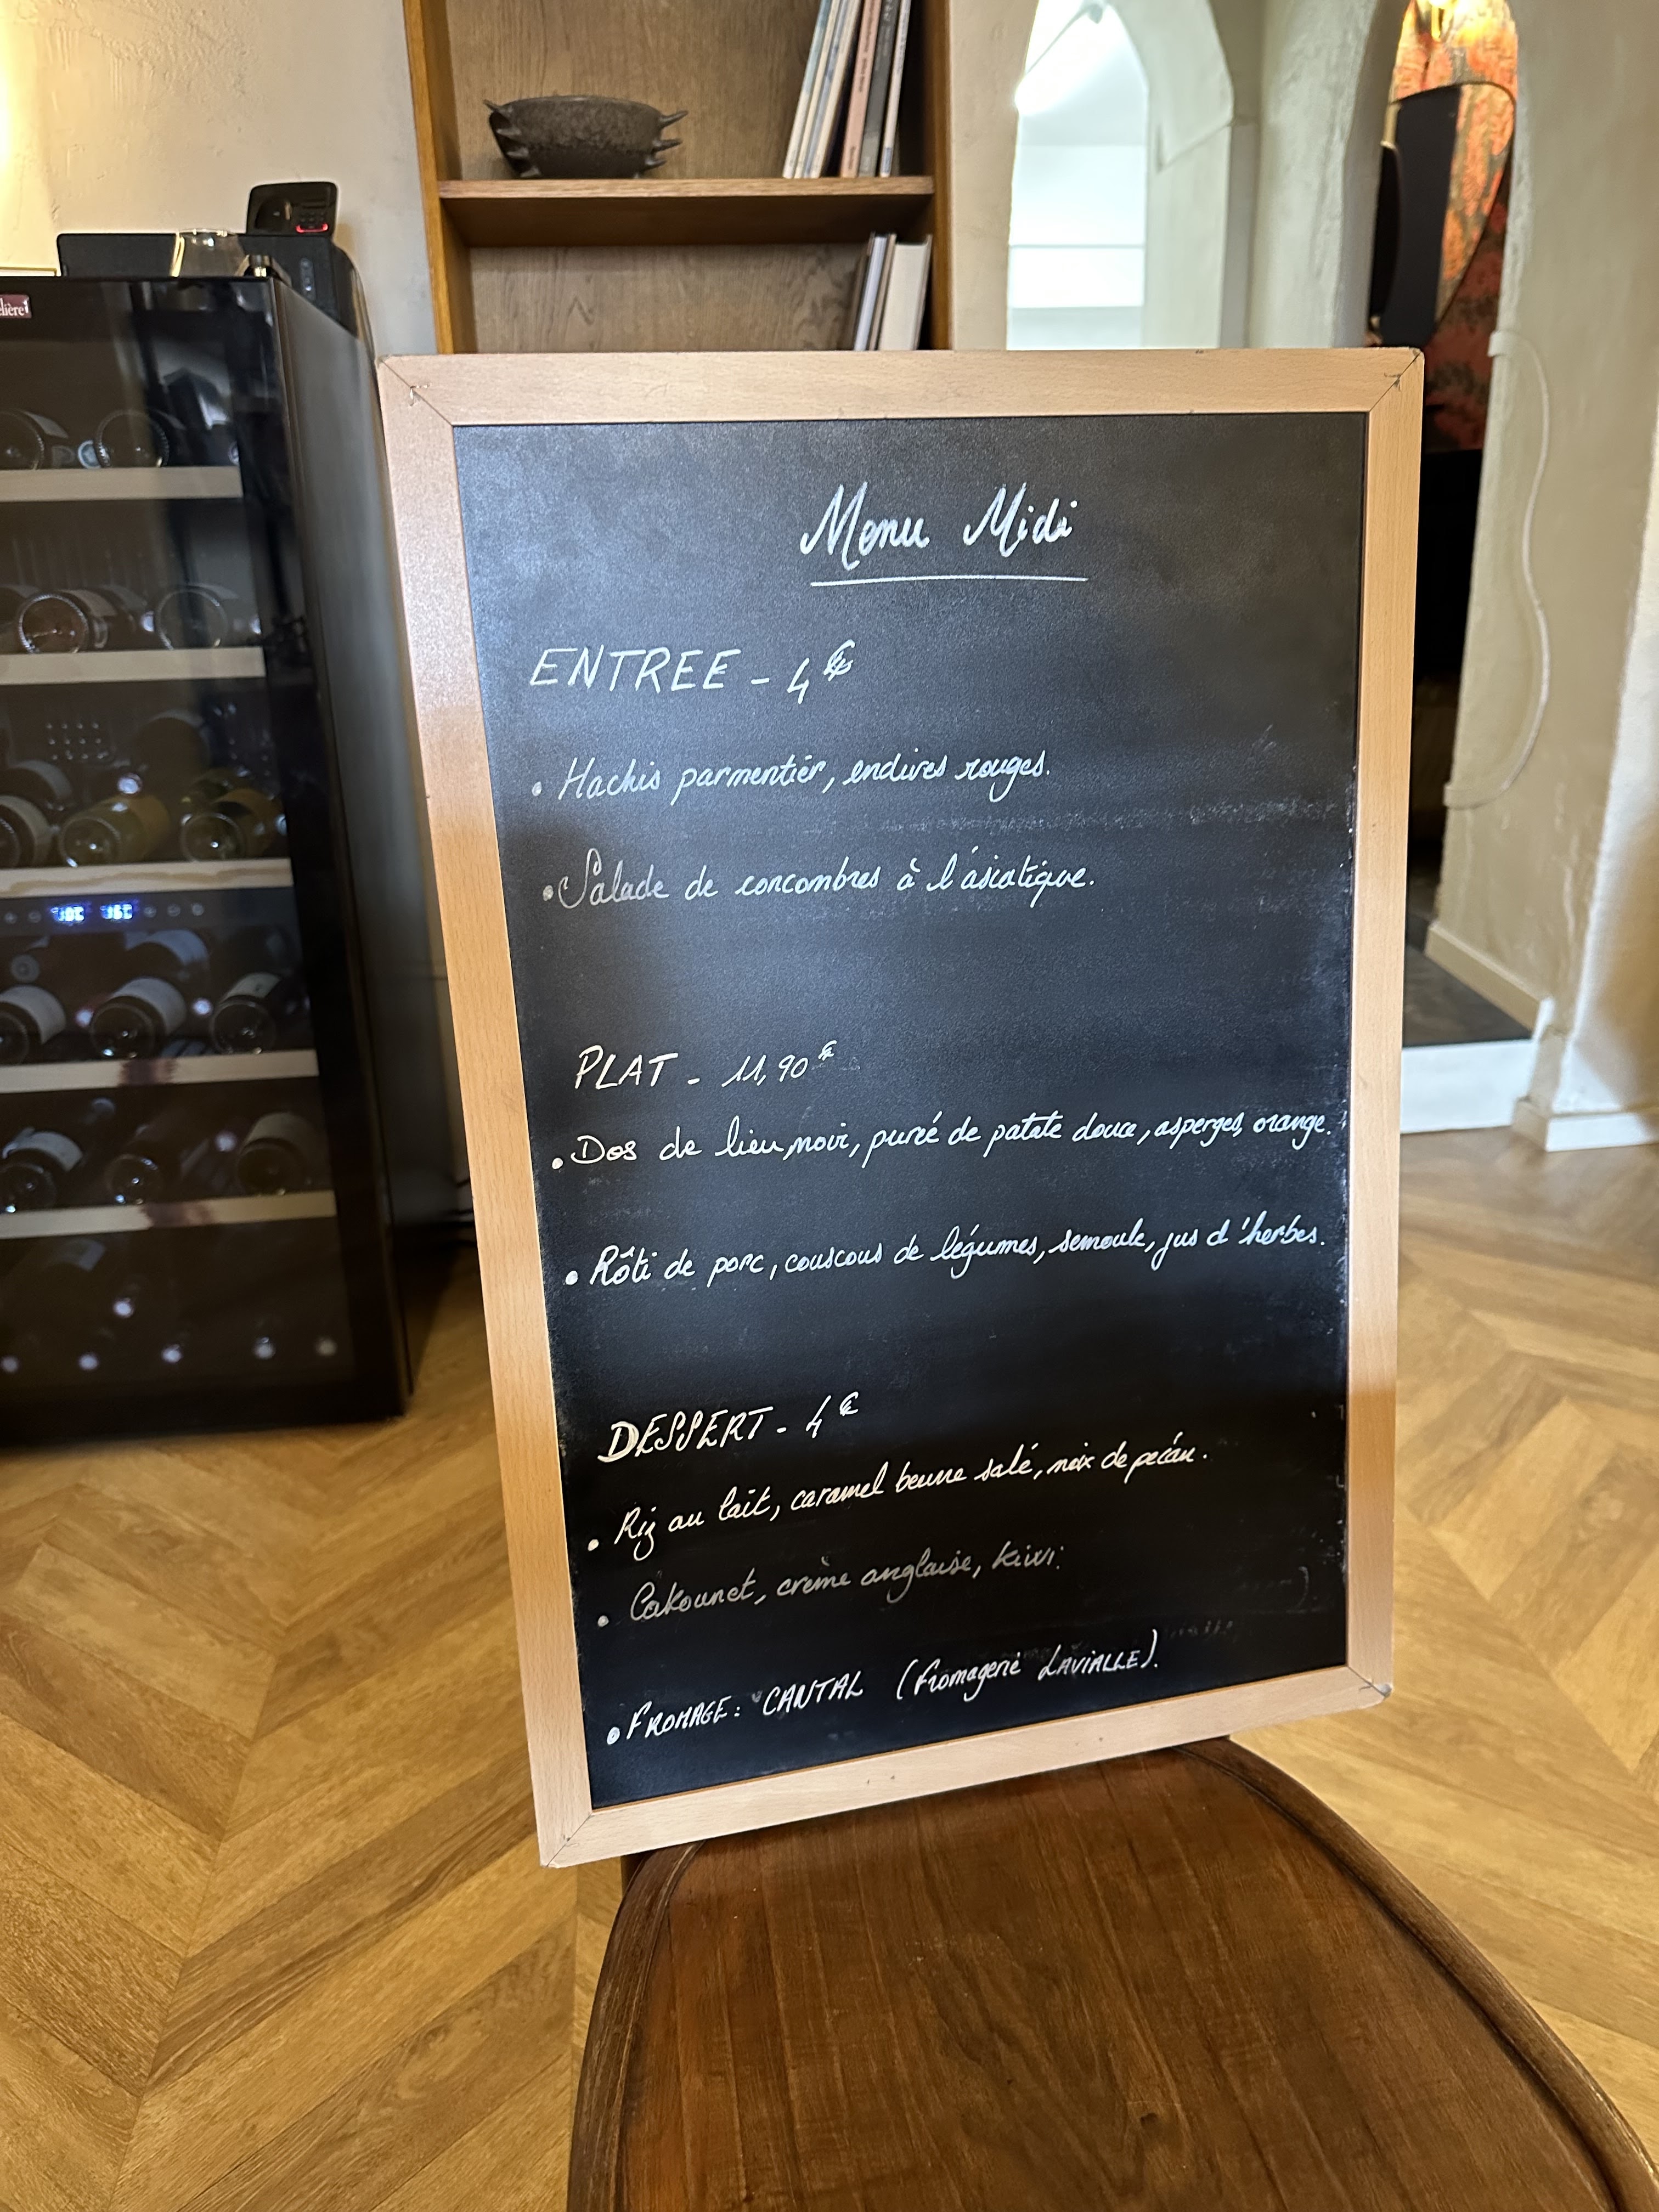 Menu Midi
ENTREE - 4€
• Hachis parmentier, endives rouges.
• Salade de concombres à l'asiatique.
PLAT - 11,90€
• Dos de lieu noir, purée de patate douce, asperges, orange.
• Rôti de porc, couscous de légumes, semoule, jus d'herbes.
DESSERT - 4€
• Riz au lait, caramel beurre salé, noix de pécan.
• Cakounet, crème anglaise, kiwi.
• FROMAGE: CANTAL (fromagerie LAVIALLE).